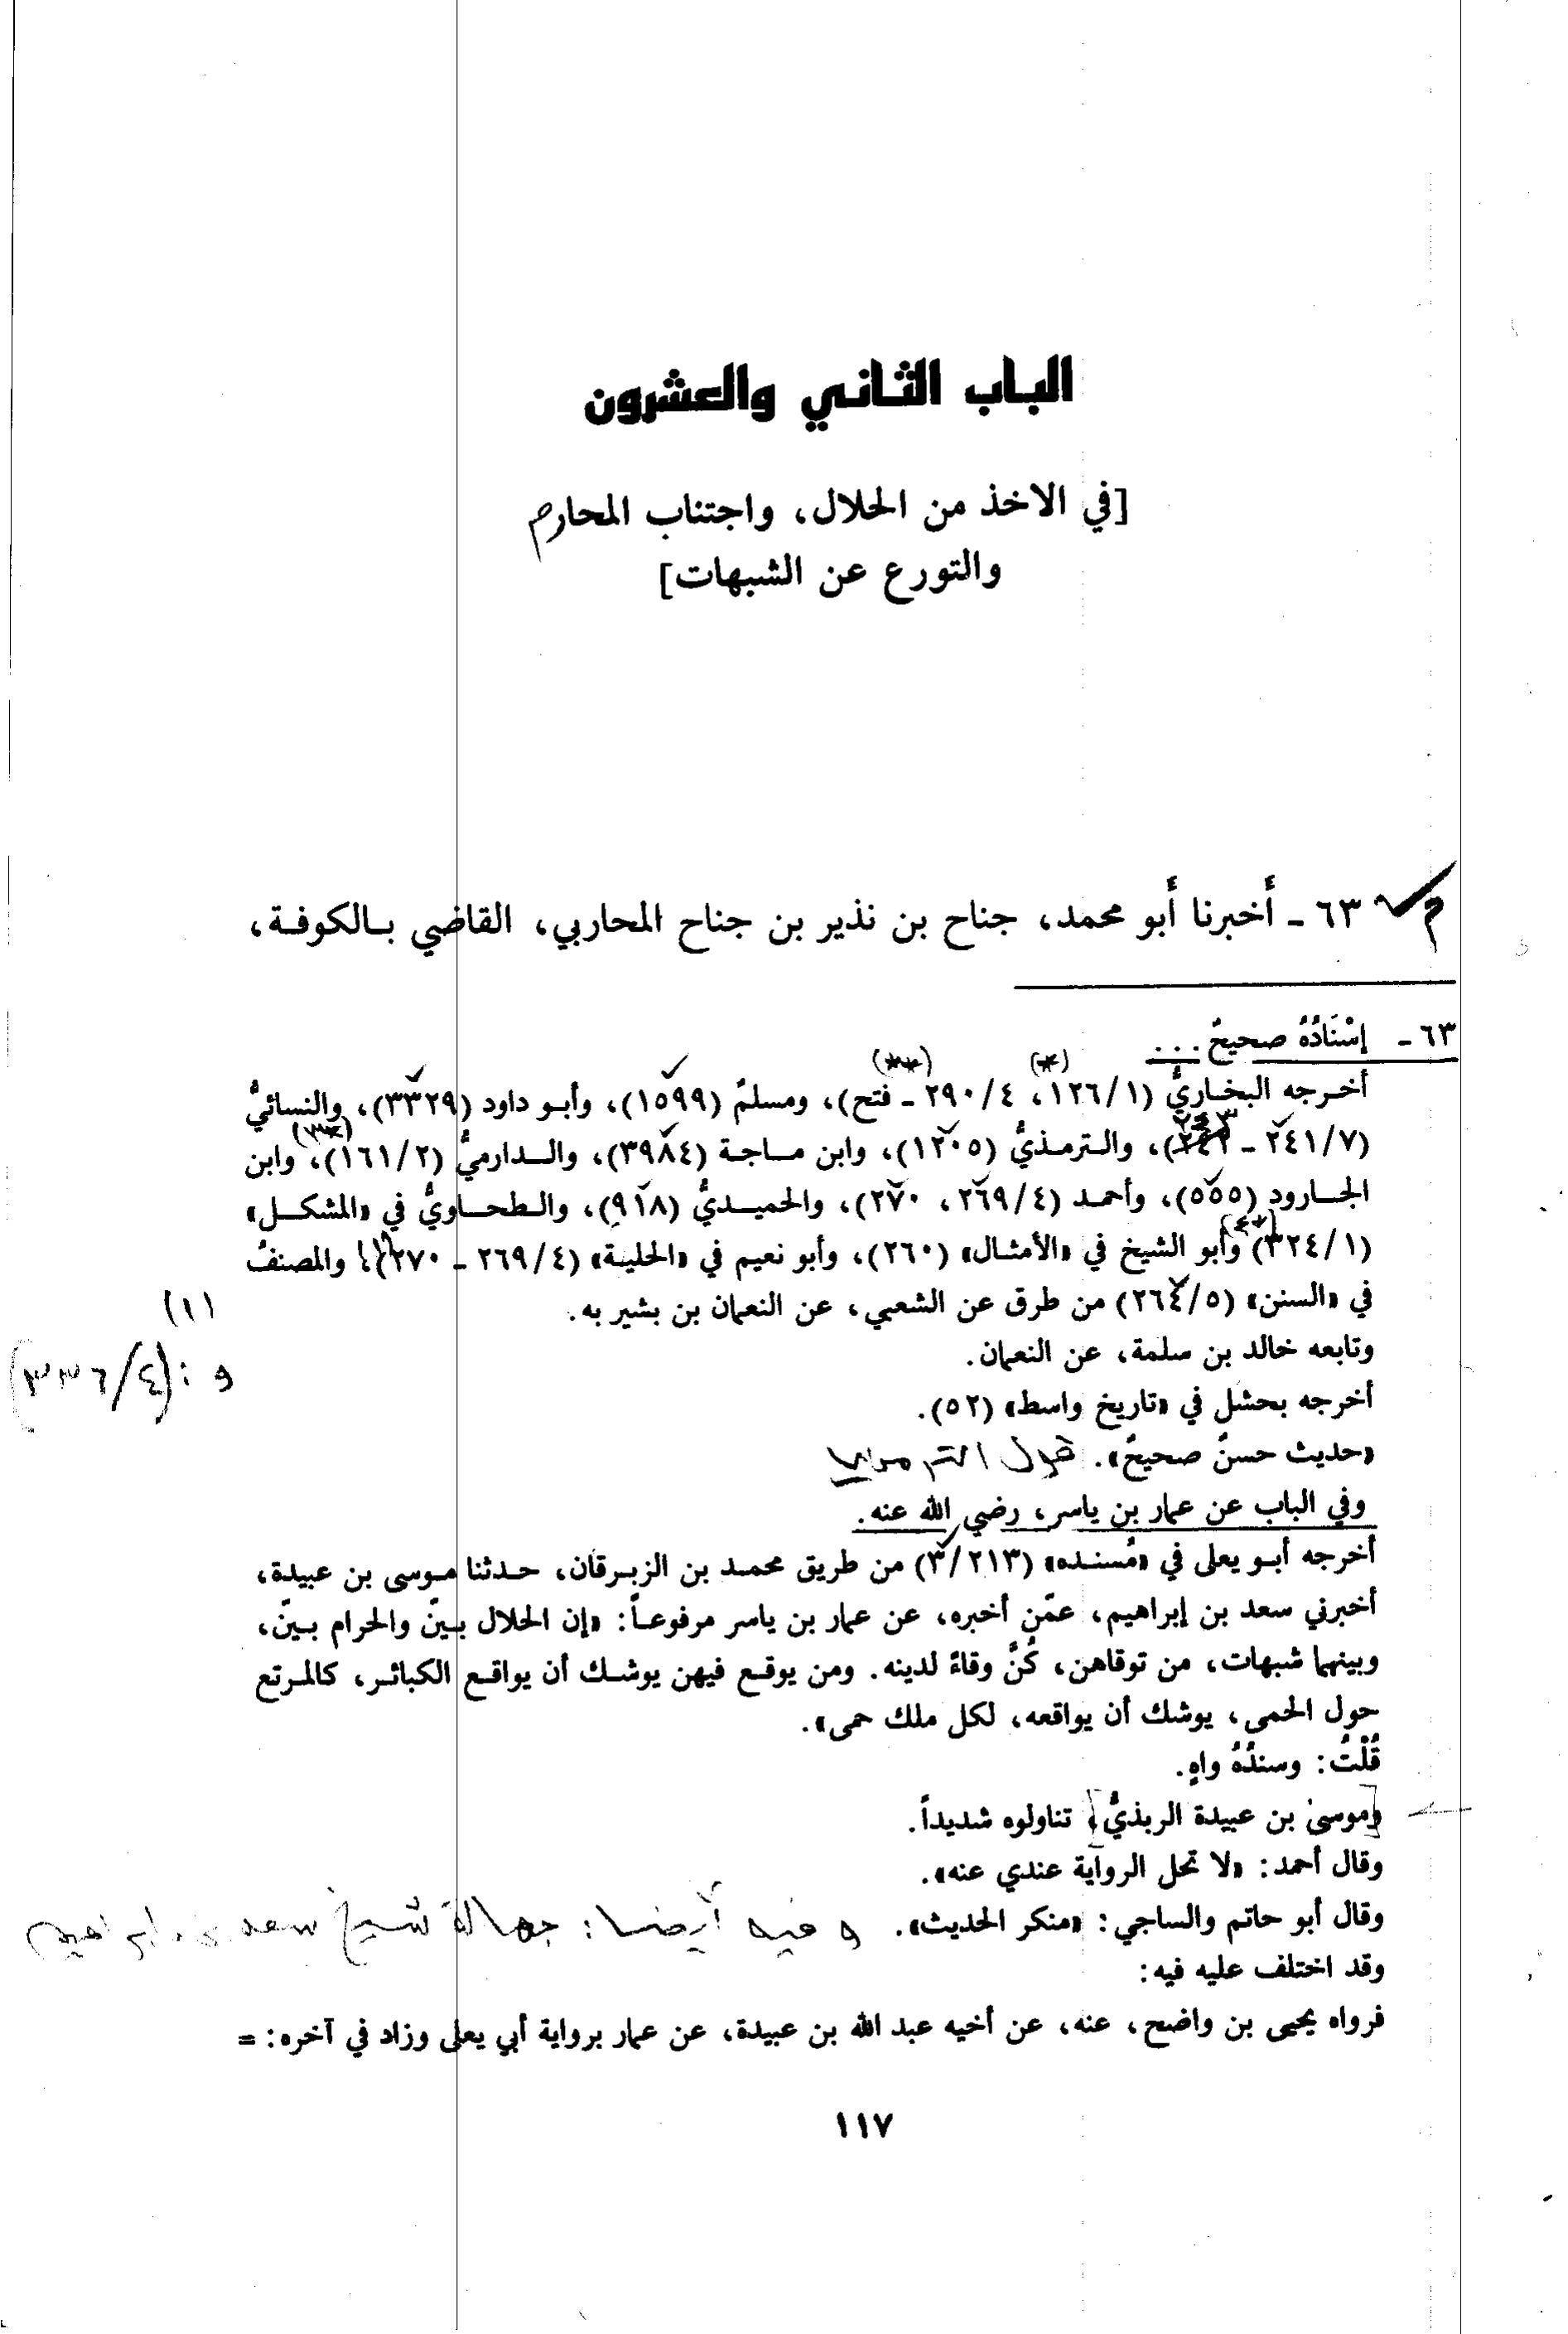 الباب الثاني والعشرون
[في الاخذ من الحلال، واجتناب المحارم
والتورع عن الشبهات]
م ٦٣ - أَخبرنا أَبو محمد، جناح بن نذير بن جناح المحاربي، القاضي بالكوفة،
٦٣ - إسْنَادُهُ صحيحٌ . . .
(*) (**)
أخرجه البخاريُّ (١/١٢٦، ٤/٢٩٠ - فتح)، ومسلمٌ (١٥٩٩)، وأبو داود (٣٣٢٩)، والنسائيُّ
(٧/٢٤١ - )، والترمذيُّ (١٢٠٥)، وابن ماجة (٣٩٨٤)، والدارميُّ (٢/١٦١)، وابن
الجارود (٥٥٥)، وأحمد (٤/٢٦٩، ٢٧٠)، والحميديُّ (٩١٨)، والطحاويُّ في «المشكل»
(١/٣٢٤) وأبو الشيخ في «الأمثال» (٢٦٠)، وأبو نعيم في «الحلية» (٤/٢٦٩ - ٢٧٠)، والمصنفُ
في «السنن» (٥/٢٦٤) من طرق عن الشعبي، عن النعمان بن بشير به.
(١)
و : (٤/٣٣٦)
وتابعه خالد بن سلمة، عن النعمان.
أخرجه بحشل في «تاريخ واسط» (٥٢).
«حديث حسنٌ صحيحٌ». قول الترمذي
وفي الباب عن عمار بن ياسر، رضي الله عنه.
أخرجه أبو يعلى في «مُسنده» (٣/٢١٣) من طريق محمد بن الزبرقان، حدثنا موسى بن عبيدة،
أخبرني سعد بن إبراهيم، عمّن أخبره، عن عمار بن ياسر مرفوعاً: «إن الحلال بينّ والحرام بينّ،
وبينهما شبهات، من توقاهن، كُنَّ وقاءً لدينه. ومن يوقع فيهن يوشك أن يواقع الكبائر، كالمرتع
حول الحمى، يوشك أن يواقعه، لكل ملك حمى».
قُلْتُ: وسندُهُ واهٍ.
«موسىٰ بن عبيدة الربذيُّ» تناولوه شديداً.
وقال أحمد: «لا تحل الرواية عندي عنه».
وقال أبو حاتم والساجي: «منكر الحديث». وفيه أيضا: جهالة شيخ سعد بن ابراهيم
وقد اختلف عليه فيه:
فرواه يحيى بن واضح، عنه، عن أخيه عبد الله بن عبيدة، عن عمار برواية أبي يعلى وزاد في آخره: =
١١٧